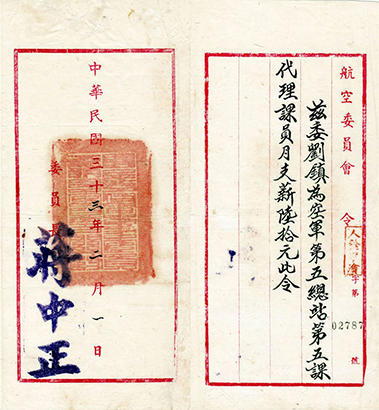 航空委員會令
字第02787號
茲委劉鎮為空軍第五總站第五課
代理課員月支薪陸拾元此令
中華民國三十三年二月一日
委員長
蔣中正